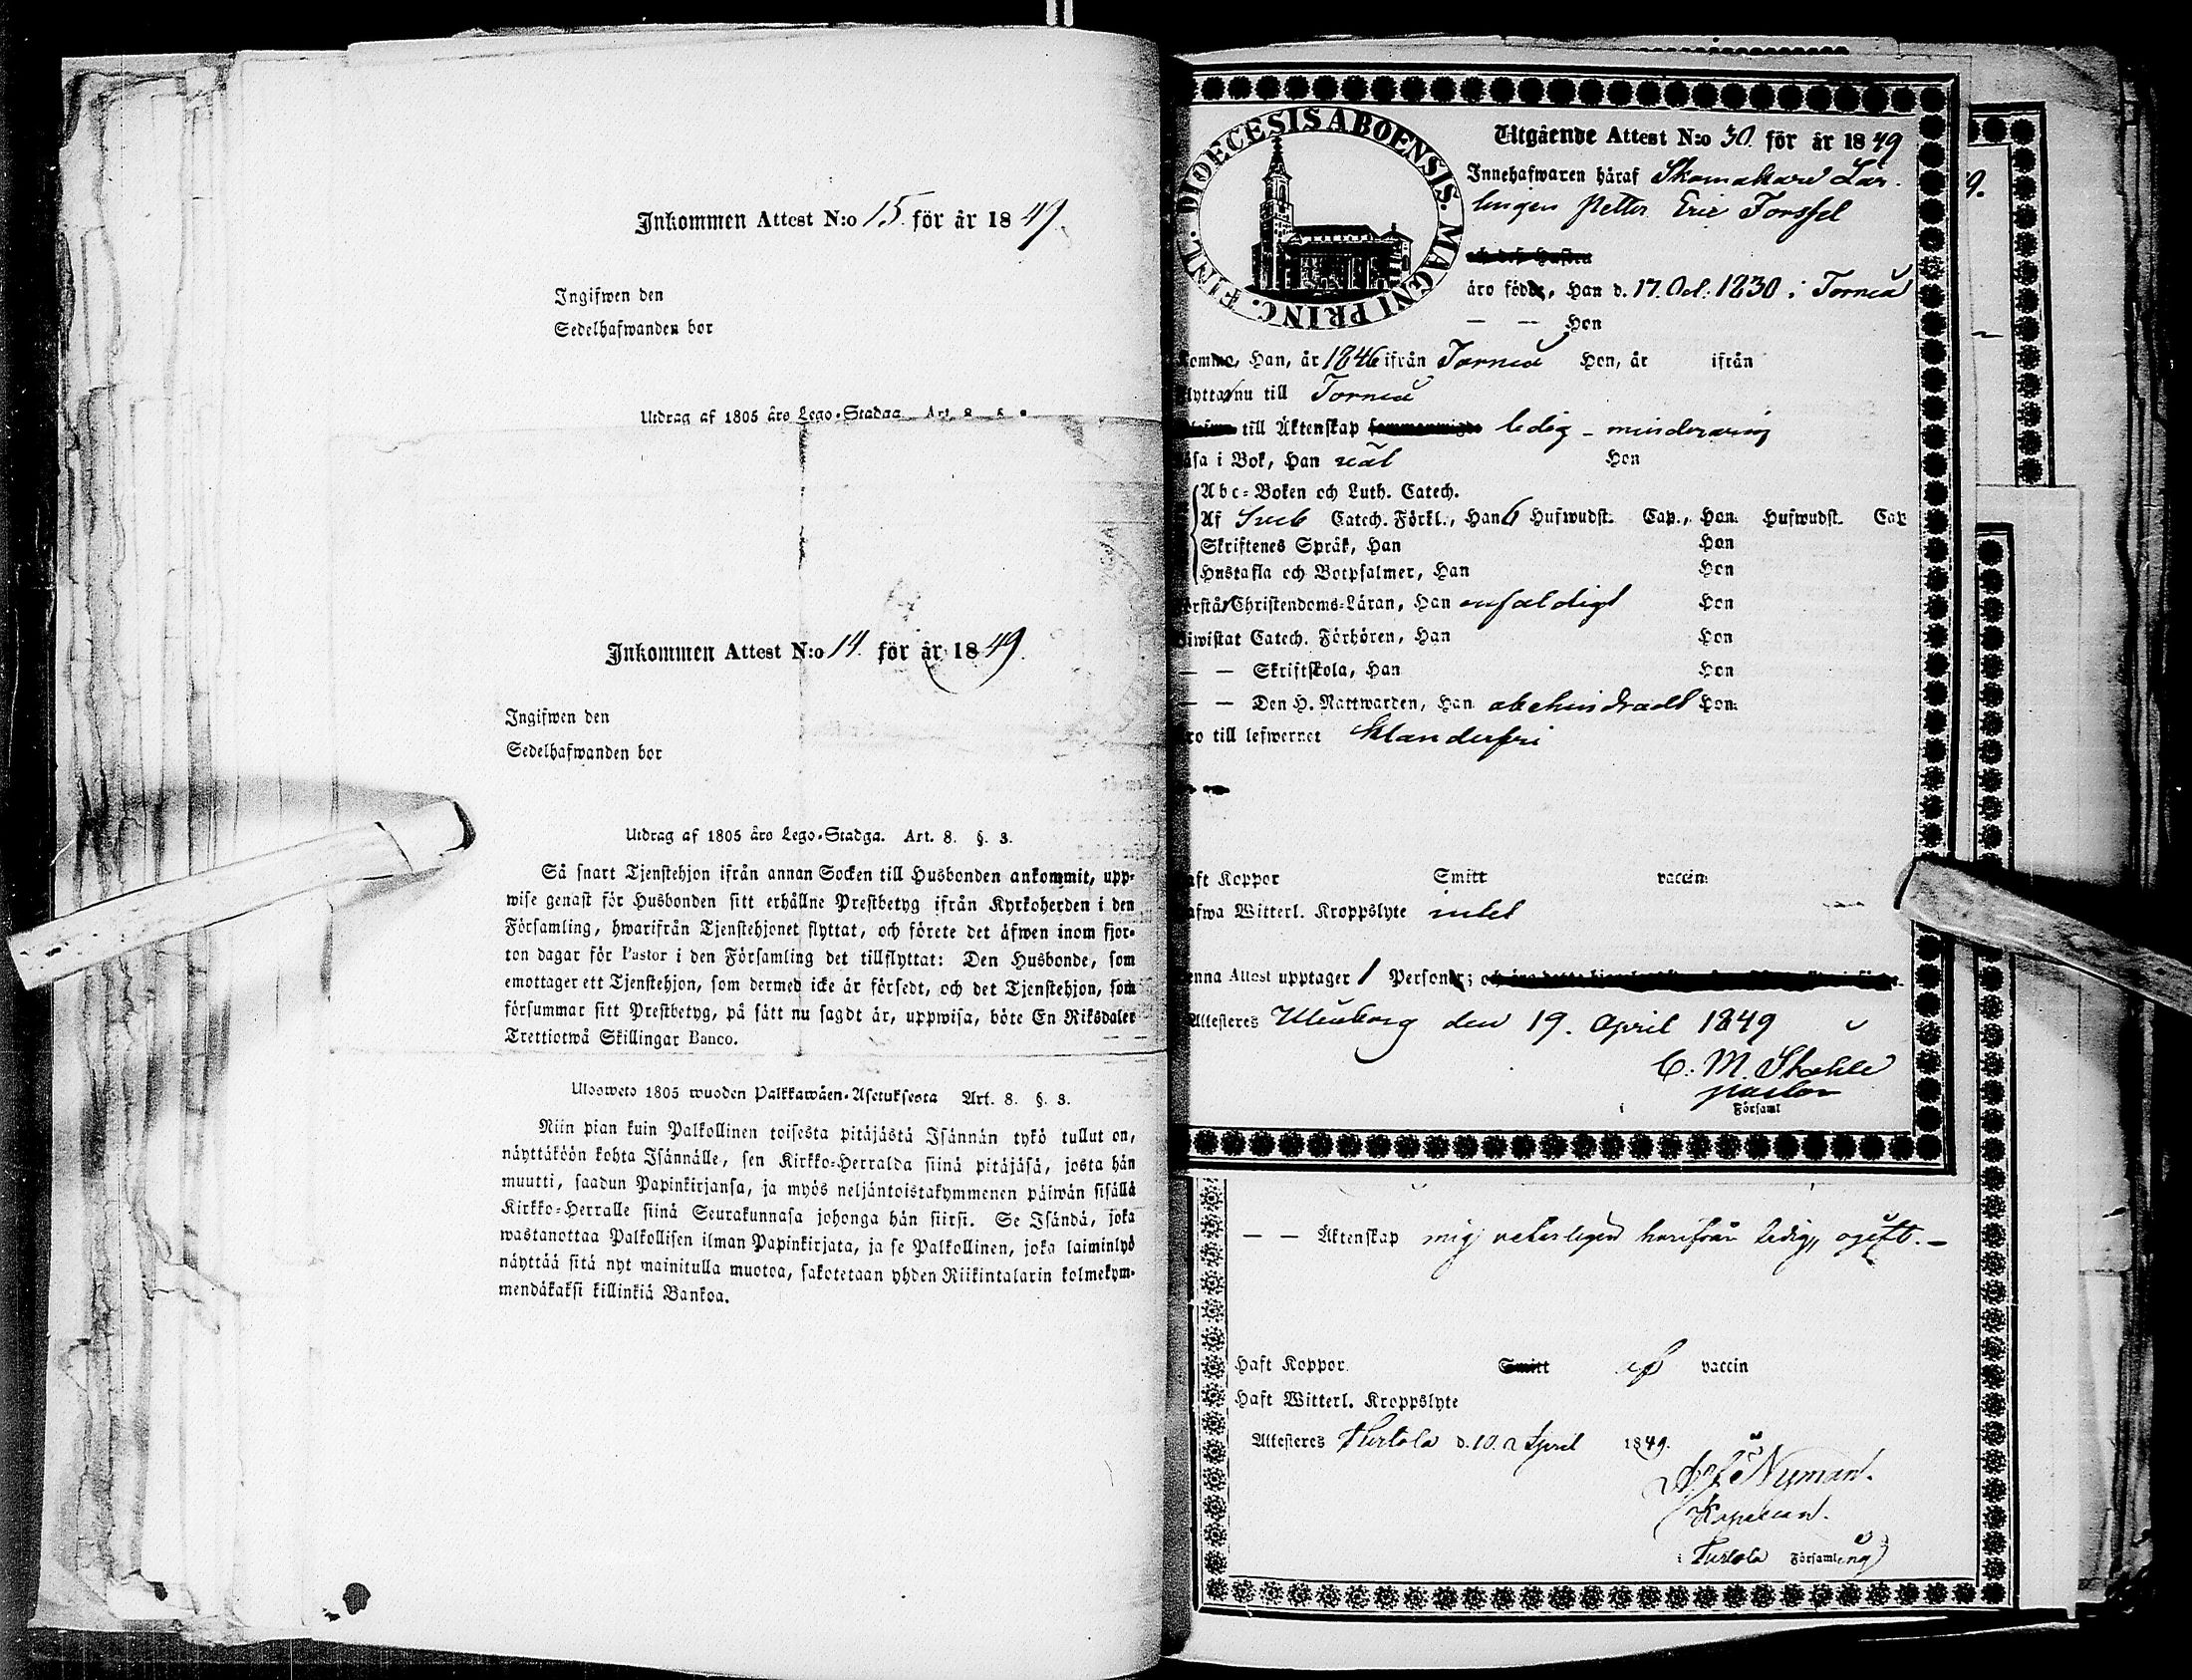 Inkommen Attest N:o 15. för år 1849.
Ingifwen den
Sedelhafwanden bor
Utdrag af 1805 års Lego-Stadga Art. 8
Inkommen Attest N:o 14. för år 1849.
Ingifwen den
Sedelhafwanden bor
Utdrag af 1805 års Lego-Stadga. Art. 8. §. 3.
Så snart Tjenstehjon ifrån annan Socken till Husbonden ankommit, upp-
wise genast för Husbonden sitt erhållne Prestbetyg ifrån Kyrkoherden i den
Församling, hwarifrån Tjenstehjonet flyttat, och förete det äfwen inom fjor-
ton dagar för Pastor i den Församling det tillflyttat: Den Husbonde, som
emottager ett Tjenstehjon, som dermed icke är försedt, och det Tjenstehjon, som
försummar sitt Prestbetyg, på sätt nu sagdt är, uppwisa, böte En Riksdaler
Trettiotwå Skillingar Banco.
Ulosweto 1805 wuoden Palkkawäen-Asetuksesta Art. 8. §. 3.
Niin pian kuin Palkollinen toisesta pitäjästä Isännän tykö tullut on,
näyttäköön kohta Isännälle, sen Kirkko-Herralda siinä pitäjäsä, josta hän
muutti, saadun Papinkirjansa, ja myös neljäntoistakymmenen päiwän sisällä
Kirkko-Herralle siinä Seurakunnasa johonga hän siirsi. Se Isändä, joka
wastanottaa Palkollisen ilman Papinkirjata, ja se Palkollinen, joka laiminlyö
näyttää sitä nyt mainitulla muotoa, sakotetaan yhden Riikintalarin kolmekym-
mendäkaksi killinkiä Bankoa.
DIOECESIS ABOENSIS. MAGNI PRINC. FINL.
Utgående Attest N:o 30. för år 1849
Innehafwaren häraf Skomakare Lär-
lingen Petter Eric Forssel
och dess Hustru
äro födde, Han d. 17. Oct: 1830 i Torneå
— — Hon
komme, Han, år 1846 ifrån Torneå Hon, år ifrån
flytta nu till Torneå
till Äktenskap ledig – minderårig
läsa i Bok, Han väl Hon
Abc-Boken och Luth. Catech.
Af Sveb Catech. Förkl., Han 6 Hufwudst. Cap., Hon Hufwudst. Cap
Skriftenes Språk, Han Hon
Hustafla och Botpsalmer, Han Hon
förstå Christendoms-Läran, Han enfaldigt Hon
Biwistat Catech. Förhören, Han Hon
— — Skriftskola, Han Hon
— — Den H. Nattwarden, Han obehindradt Hon
äro till lefwernet klanderfri
haft Koppor Smitt vaccin
hafwa Witterl. Kroppslyte intet
denna Attest upptager 1 Personer;
Attesteres Uleåborg den 19. April 1849
C. M. Stähle
pastor
i Församl
— — Äktenskap mig veterligen härifrån ledig, ogift. –
Haft Koppor Smitt vaccin
Haft Witterl. Kroppslyte
Attesteres Turtola d. 10. April 1849.
Nyman.
Kapellan.
i Turtola Församling